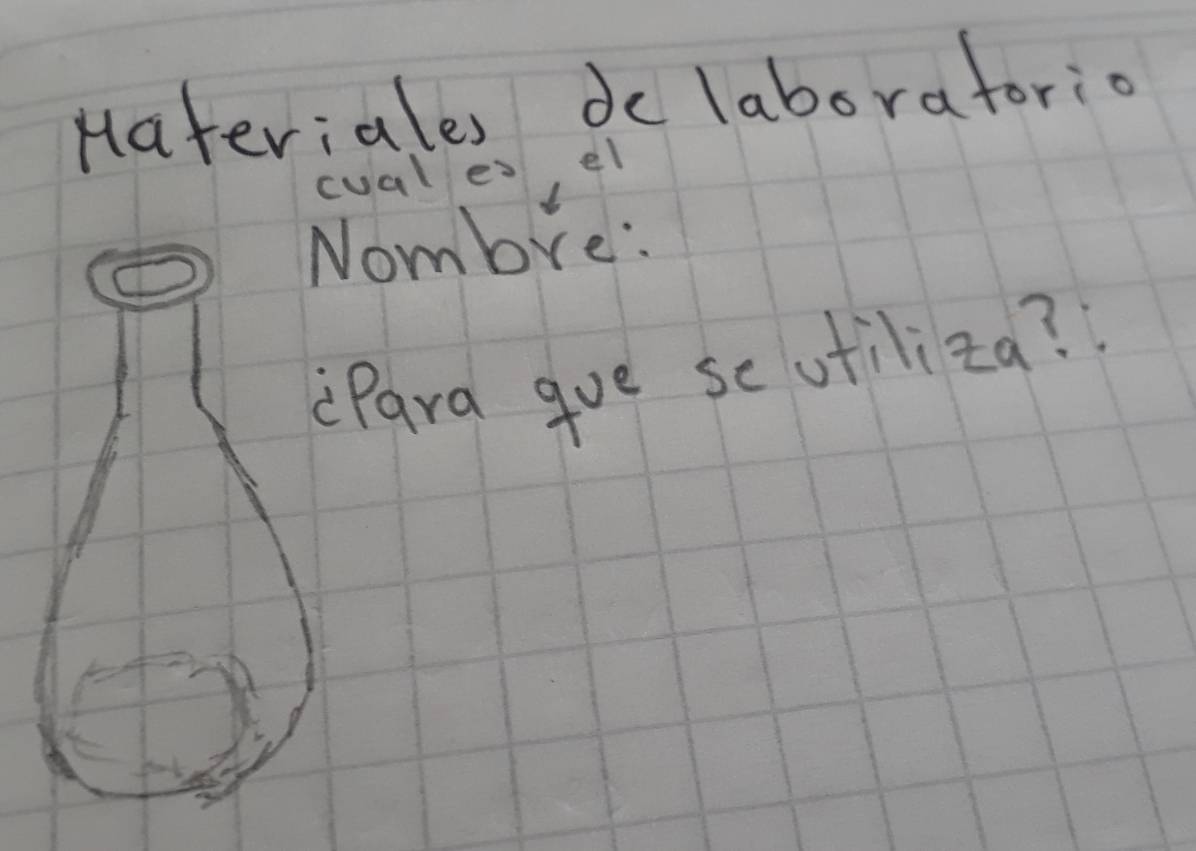 Materiales de laboratorio
cual es el
Nombre:
¿Para que se utiliza?: